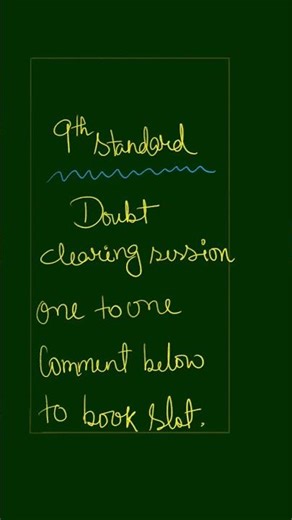 9th standard
Doubt
clearing session
one to one
Comment below
to book slot.